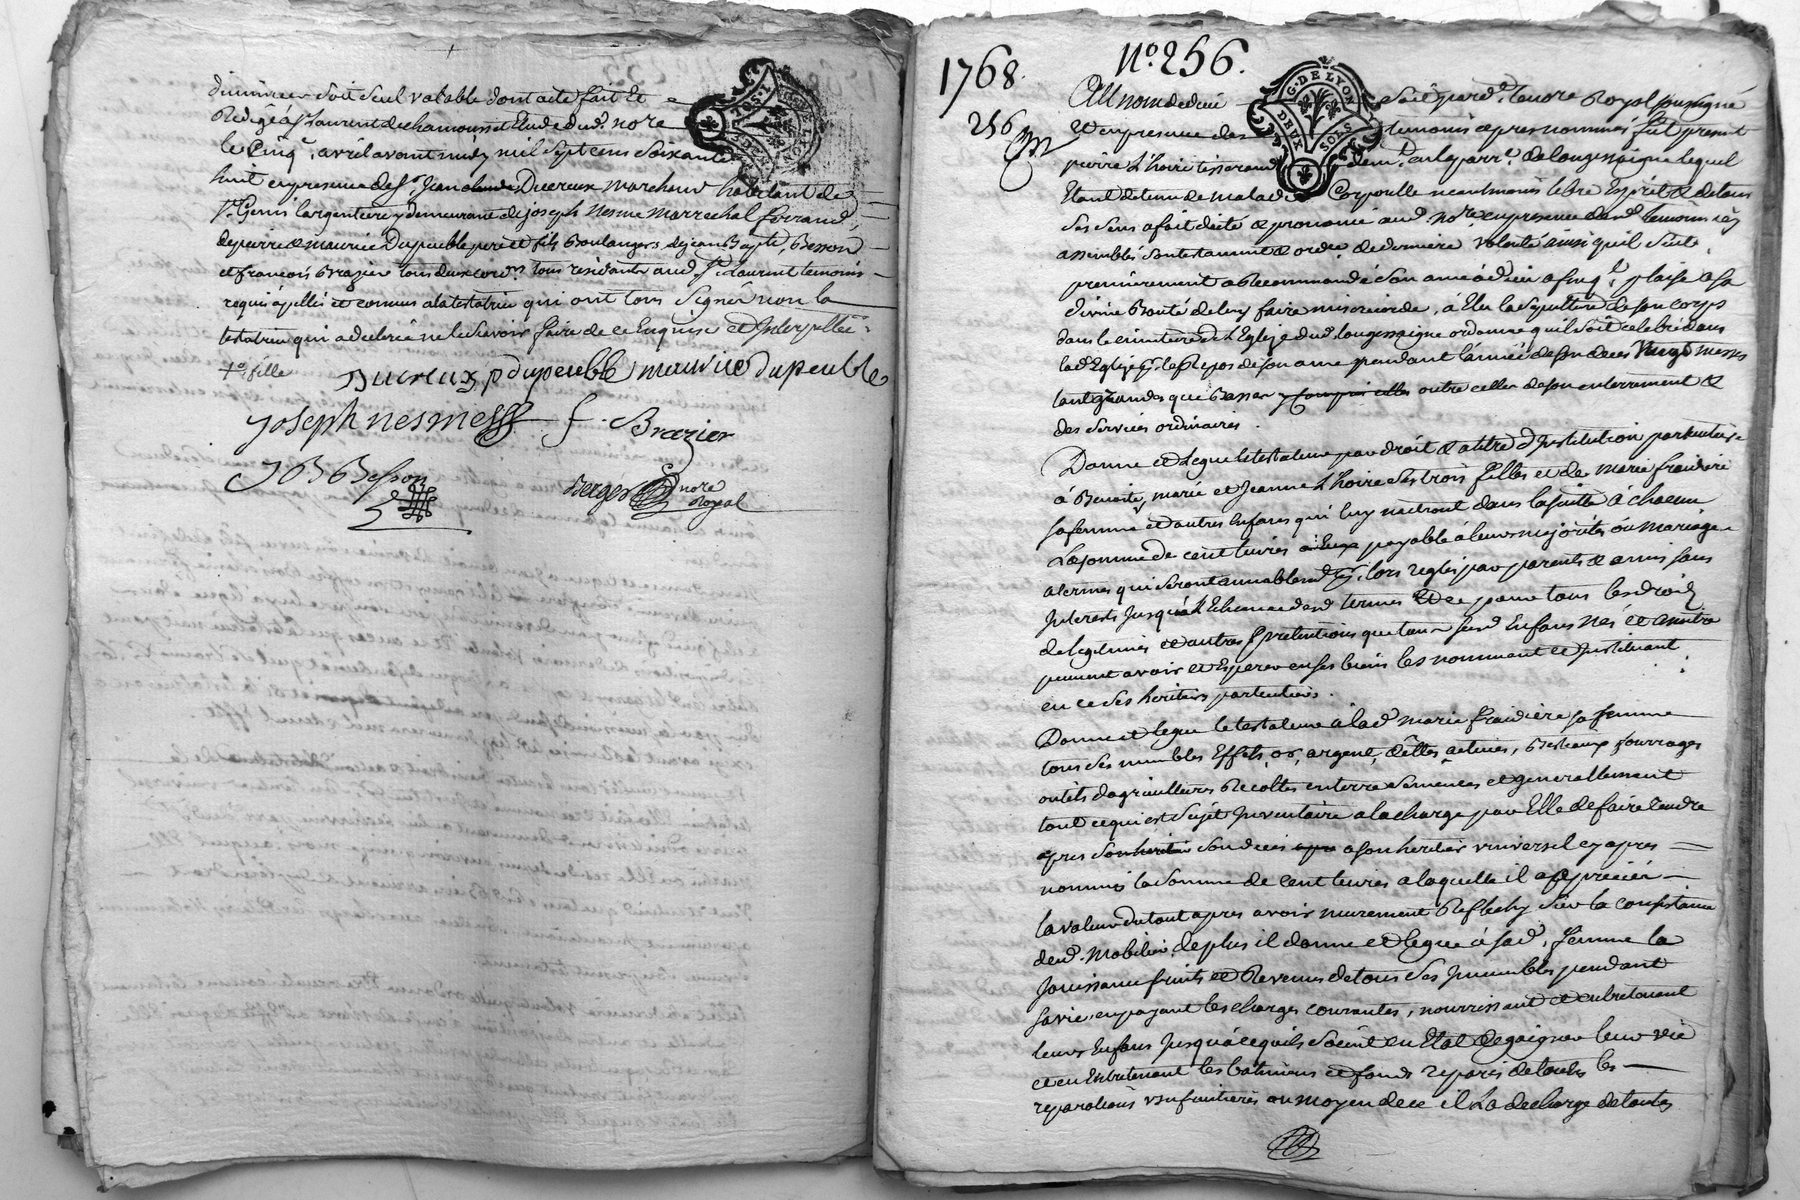 dernier soit seul valable dont acte fait et
Redigé à St Laurent de chamousset Etude dud. nore
le Cinq. avril avant midy mil Sept cens Soixante
huit en presence de Sr. Jean claude Ducreux marchand habitant de
St. Genis l'argentiere y demeurant de joseph Nesme marrechal ferrand,
de pierre & maurice Dupeuble pere et fils Boulangers, de jean Bapte. Besson
et francois Brazier tous deux tous residants aud. St. Laurent temoins
requis appellés et connus a la testatrice qui ont tous Signé non la
testatrice qui a declaré ne le Scavoir faire de ce Enquise et Interpellée
fille
Ducreux p dupeuble maurice Dupeuble
Joseph nesme f. Brazier
JB Besson
Berger nore
Royal
G. DE LYON
DEUX SOLS
1768. No. 256.
256
Au nom de dieu Soit, pard. le nore Royal soussigné
Et en presence des temoins apres nommés fut present
pierre L'hoire tisserand dem.t en la parr.e de longessaigne lequel
Etant detenu de maladie Corporelle neanmoins libre Esprit & de tous
Ses Sens a fait dicté & prononcé aud. Nore en presence desd. temoins icy
assemblés Son testament & ordce. de derniere volonté ainsi qu'il Suit.
premierement a Recommandé Son ame à dieu afinq. l plaise a Sa
divine Bonté de luy faire misericorde, à Elu la Sepulture de Son Corps
dans le cimetiere de L'Eglise dud. longessaigne ordonne qu'il Soit celebré dans
lad. Eglise pr. le Repos de Son ame pendant l'année de Son deces Vingt messes
tant grandes que Basses y compris celles outre celles de Son enterrement &
des Services ordinaires.
Donne et Legue le testateur par droit & a titre d'Institution particuliere
à Benoite, marie et Jeanne L'hoire Ses trois filles et de marie fraidiere
Sa femme et d'autres Enfans qui luy naitront dans la Suitte à chacun
La Somme de cent livres payable à leurs majorités ou Mariage
a termes qui Seront amiablemt. pr. lors reglés par parents & amis Sans
Interets Jusqu'à L'Echeance desd. termes Et ce pour tous les droits
de legitimes et autres pretentions que tous Sesd. Enfans Nés et a naitre
peuvent avoir et Esperer en Ses biens les nommant et Instituant
en ce Ses heritiers particuliers.
Donne et legue le testateur à lad. marie fraidiere Sa femme
tous Ses meubles Effets, or, argent, dêttes actives, Bestiaux fourrages
outils d'agriculture Recoltes en terre Semences et generallement
tout ce qui est Sujet Inventaire a la charge par Elle de faire rendre
apres Son heritier Son deces a Son heritier universel cy apres
nommé la Somme de cent livres a laquelle il a apprécié
la valeur du tout apres avoir murement Reflechy Sur la consistance
dud. Mobilier, de plus il donne et legue à Sad. femme la
Jouissance fruits et Revenus de tous Ses Immeubles pendant
Sa vie, en payant les charges courantes, nourrissant et entretenant
leurs Enfans Jusqu'à ce qu'ils Soient en Etat de gaigner leur vie
et en Entretenant les batimens et fonds reparés de toutes les
reparations usufruitieres au moyen de ce il La decharge de toutes